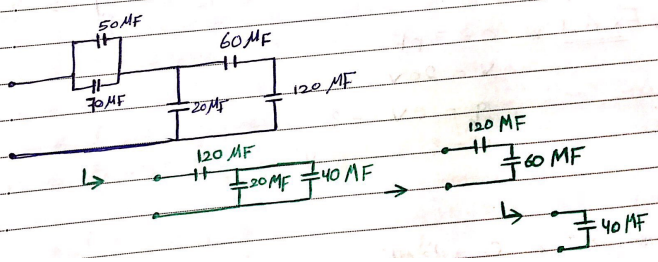 50 MF
60 MF
70 MF
20 MF
120 MF
120 MF
20 MF
40 MF
120 MF
60 MF
40 MF